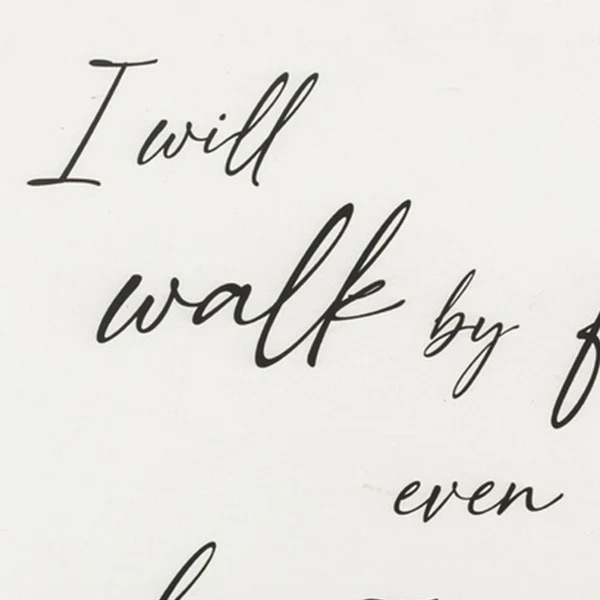 I will
walk by
even